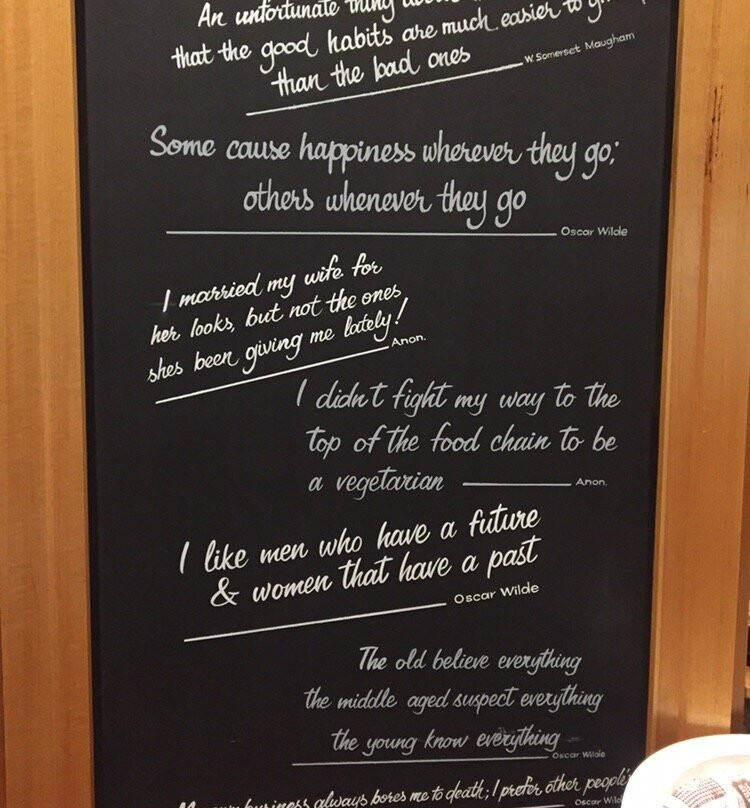 An unfortunate thing
that the good habits are much easier to
than the bad ones
W. Somerset Maugham
Some cause happiness wherever they go;
others whenever they go
Oscar Wilde
I married my wife for
her looks, but not the ones
shes been giving me lately!
Anon.
I didn't fight my way to the
top of the food chain to be
a vegetarian Anon.
I like men who have a future
& women that have a past
Oscar Wilde
The old believe everything
the middle aged suspect everything
the young know everything
Oscar Wilde
business always bores me to death; I prefer other people's
Oscar